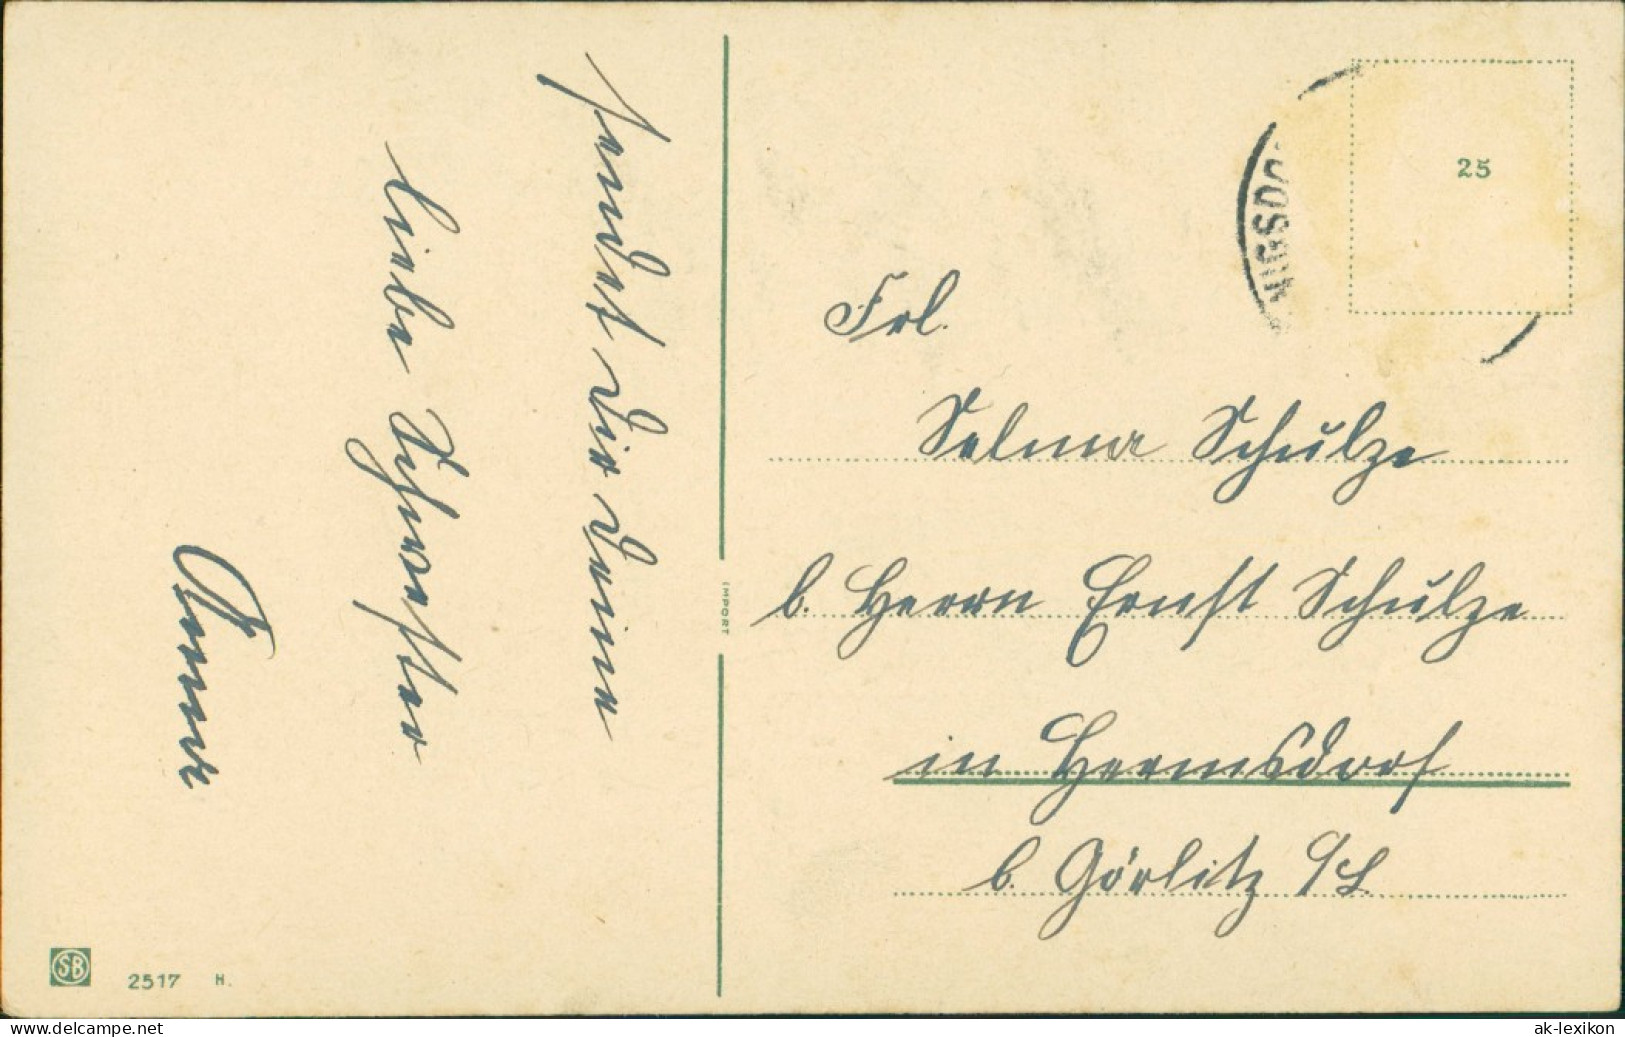 sendet dir deine
liebe Schwester
25
Frl.
Selma Schulze
b. Herrn Ernst Schulze
in Hermsdorf
b. Görlitz S/L
IMPORT
SB 2517 H.
www.delcampe.net
ak-lexikon